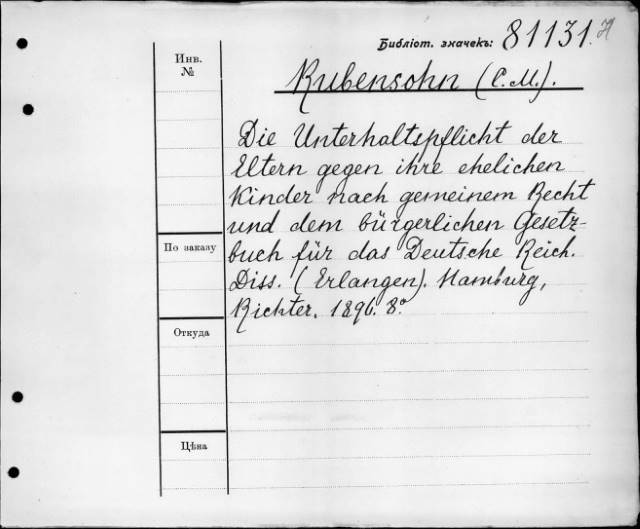 Библіот. значекъ: 81131.
Инв.
№
Rubensohn (C. M.).
Die Unterhaltspflicht der
Eltern gegen ihre ehelichen
Kinder nach gemeinem Recht
und dem bürgerlichen Gesetz-
buch für das Deutsche Reich.
По заказу
Diss. (Erlangen). Hamburg,
Richter. 1896. 8°.
Откуда
Цѣна